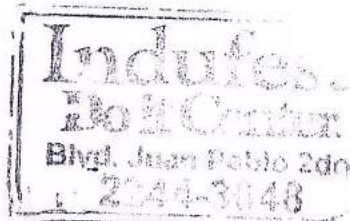 Indufes
Do it Center
Blvd. Juan Pablo 2do
2244-3048